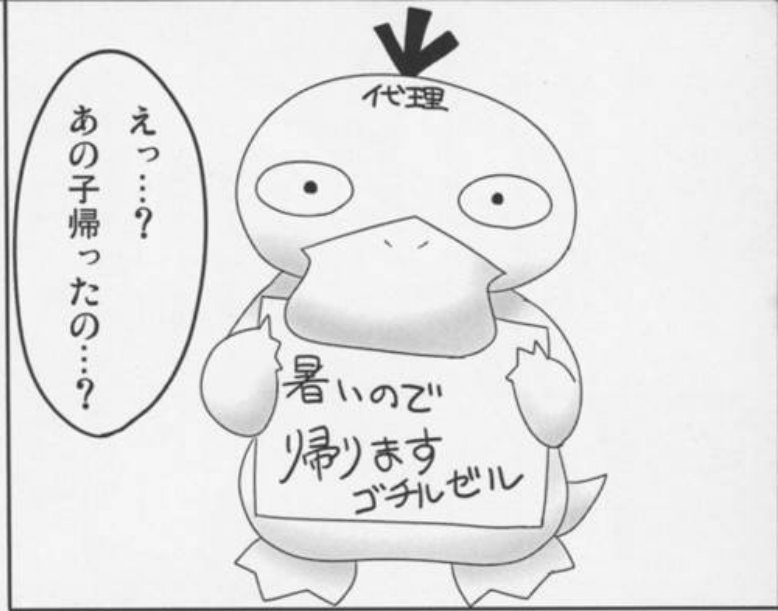 えっ…?
あの子帰ったの…?
代理
暑いので
帰ります
ゴチルゼル